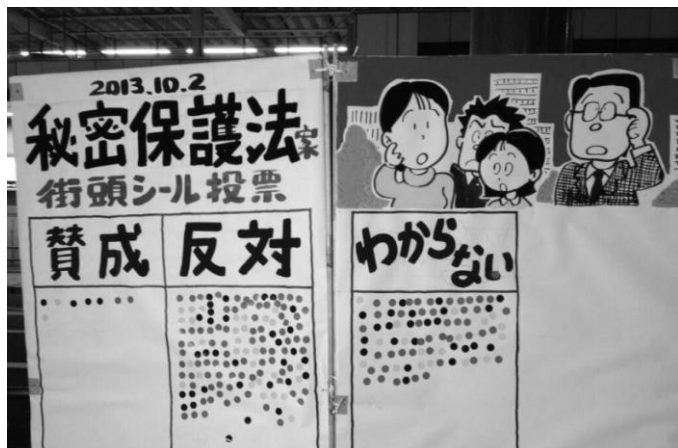 2013.10.2
秘密保護法案
街頭シール投票
賛成
反対
わからない